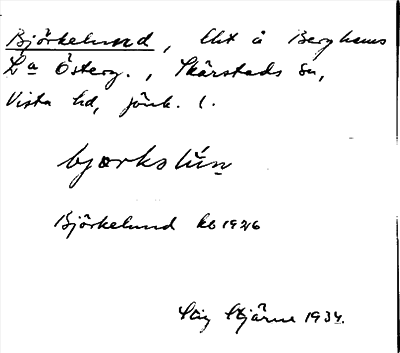 Björkelund, Uht å Berghems
La Österg., Skärstads sn,
Vista hd, jönk. l.
bjœrkslún
Björkelund kb 1926
Stig Stjärne 1934.